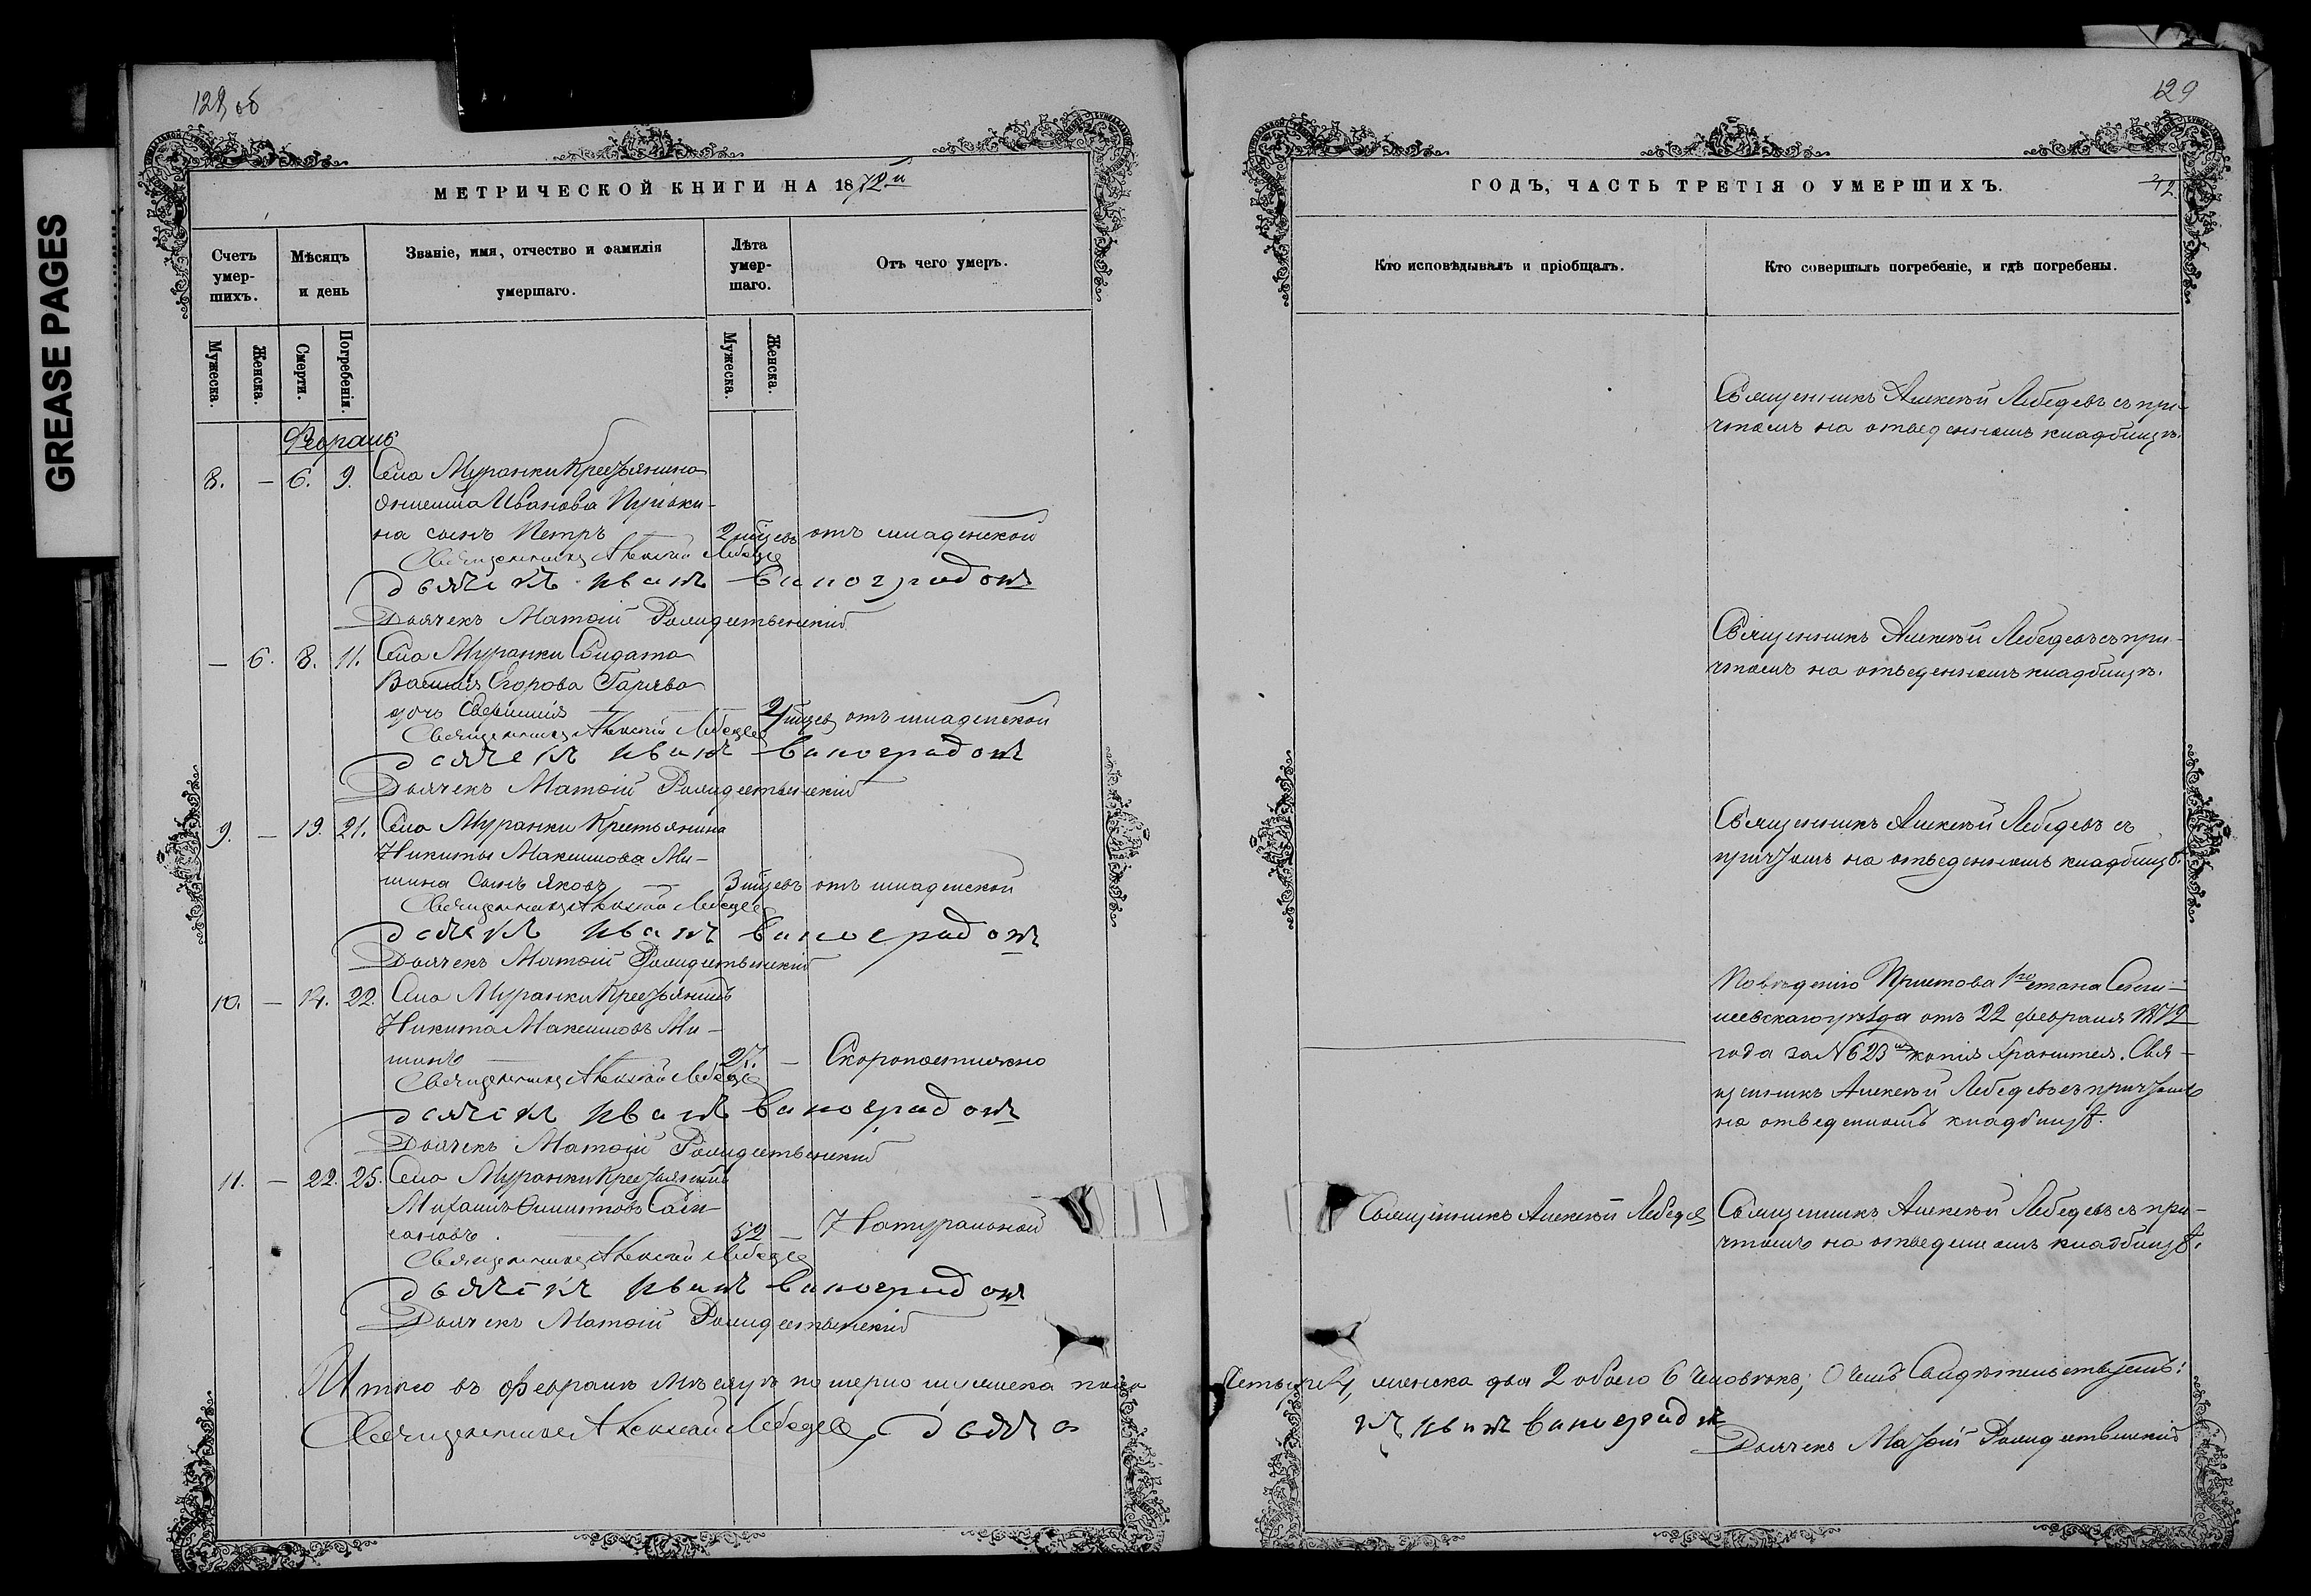 GREASE PAGES
128 об
МЕТРИЧЕСКОЙ КНИГИ НА 1872й
Счетъ умер-шихъ.
Мѣсяцъ и день
Званіе, имя, отчество и фамилія умершаго.
Лѣта умер-шаго.
Отъ чего умеръ.
Мужеска.
Женска.
Смерти.
Погребенія.
Мужеска.
Женска.
Февраль
8. — 6. 9. Села Муранки Крестьянина
Ивана
на сынъ Петръ 2 мѣсяцевъ отъ младенской
Священникъ Алексѣй Лебедевъ
Дьячекъ Иванъ Виноградовъ
Дьячекъ Матѳій Рождественскій
— 6. 8. 11. Села Муранки Солдата
Василія Егорова
дочь 2 мѣсяцевъ отъ младенской
Священникъ Алексѣй Лебедевъ
Дьячекъ Иванъ Виноградовъ
Дьячекъ Матѳій Рождественскій
9. — 19. 21. Села Муранки Крестьянина
Никиты Максимова Ми-
шина сынъ Яковъ — 3 мѣсяцевъ отъ младенской
Священникъ Алексѣй Лебедевъ
Дьячекъ Иванъ Виноградовъ
Дьячекъ Матѳій Рождественскій
10. — 14. 22. Села Муранки Крестьянинъ
Никита Максимовъ Ми-
шинъ 27. — Скоропостижно
Священникъ Алексѣй Лебедевъ
Дьячекъ Иванъ Виноградовъ
Дьячекъ Матѳій Рождественскій
11. — 22. 25. Села Муранки Крестьянинъ
Михаилъ
52 — Натуральной
Священникъ Алексѣй Лебедевъ
Дьячекъ Иванъ Виноградовъ
Дьячекъ Матѳій Рождественскій
Итого въ Февралѣ мѣсяцѣ померло мужеска пола
Священникъ Алексѣй Лебедевъ, дьяче
129
ГОДЪ, ЧАСТЬ ТРЕТІЯ О УМЕРШИХЪ.
Кто исповѣдывалъ и пріобщалъ.
Кто совершалъ погребеніе, и гдѣ погребены.
Священникъ Алексѣй Лебедевъ съ при-
чтомъ на отведенномъ кладбищѣ.
Священникъ Алексѣй Лебедевъ съ при-
чтомъ на отведенномъ кладбищѣ.
Священникъ Алексѣй Лебедевъ съ
причтомъ на отведенномъ кладбищѣ.
По вѣденію Пристова 1го стана Сенги-
леевскаго уѣзда отъ 22 февраля 1872
года за № 623 копія хранится. Свя-
щенникъ Алексѣй Лебедевъ съ причтомъ
на отведенномъ кладбищѣ.
Священникъ Алексѣй Лебедевъ
Священникъ Алексѣй Лебедевъ съ при-
чтомъ на отведенномъ кладбищѣ.
Четыре 4, женска два 2 обоего 6 человѣкъ; О чемъ Свидѣтельствуемъ:
къ Иванъ Виноградовъ
Дьячекъ Матѳій Рождественскій